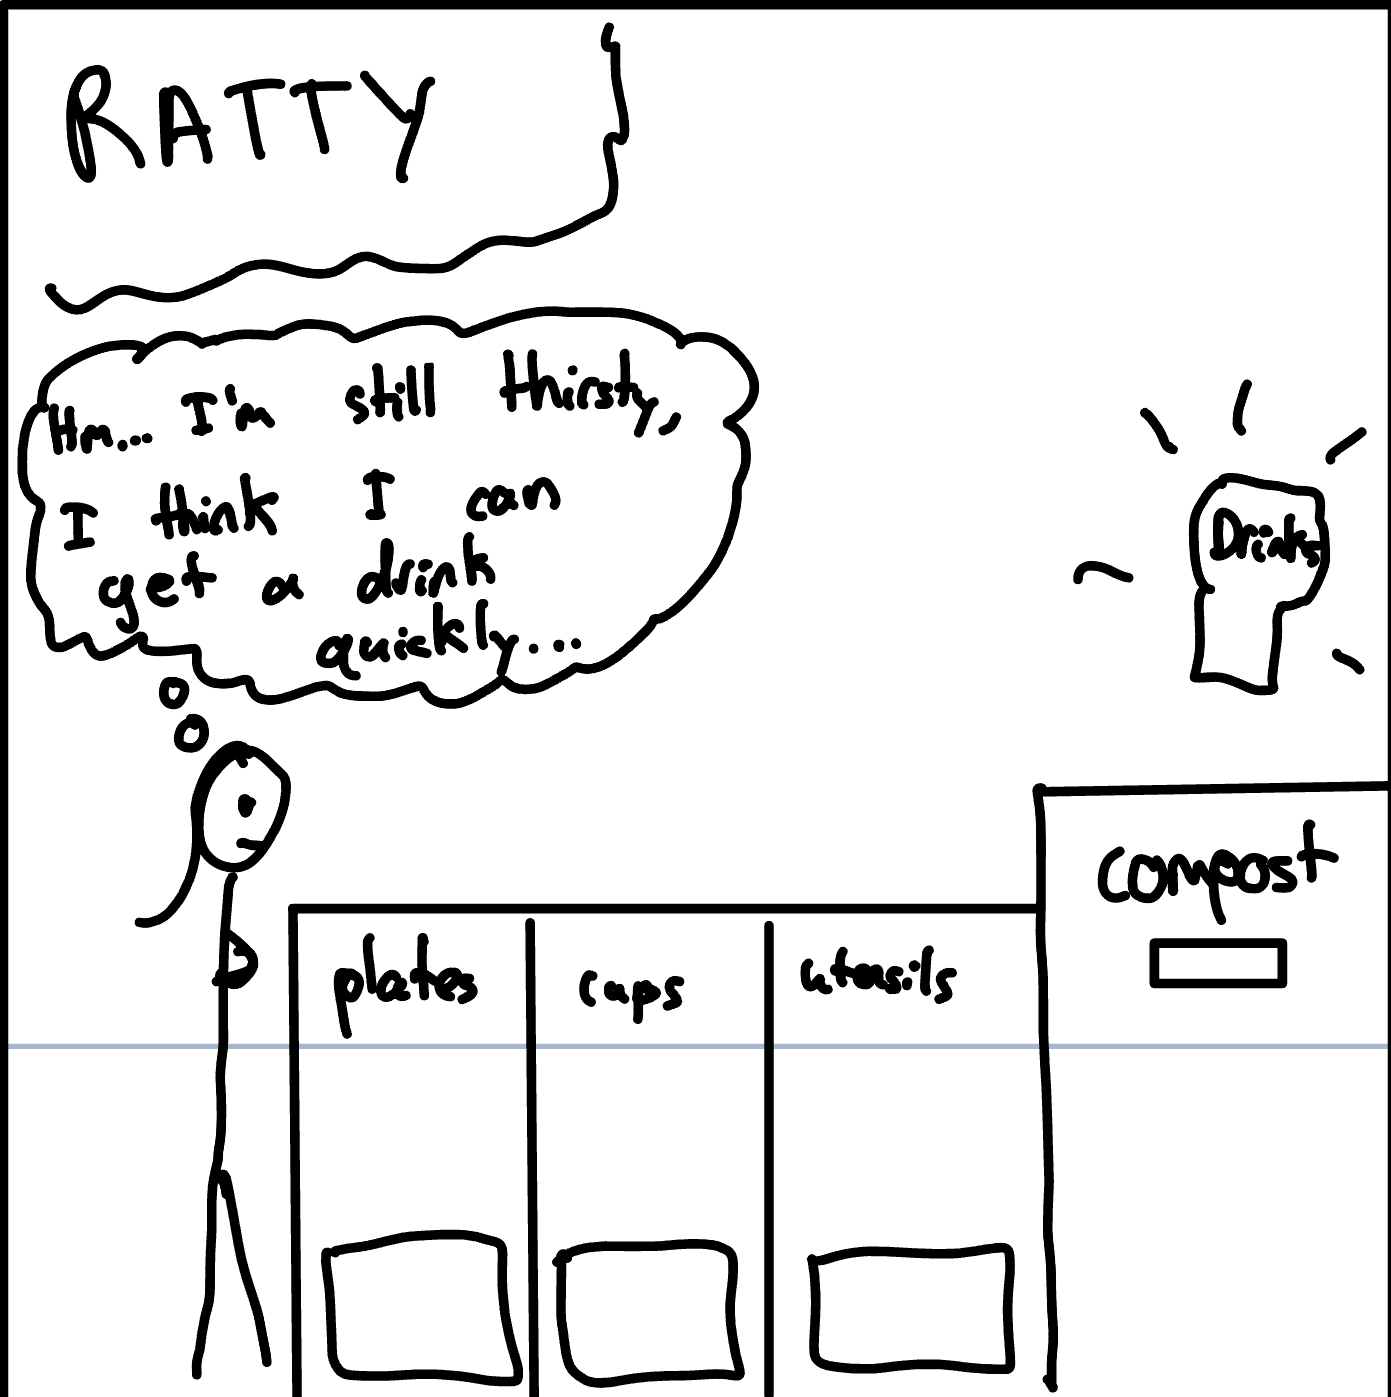 RATTY
Hm... I'm still thirsty,
I think I can
get a drink
quickly...
Drinks
compost
plates cups utensils